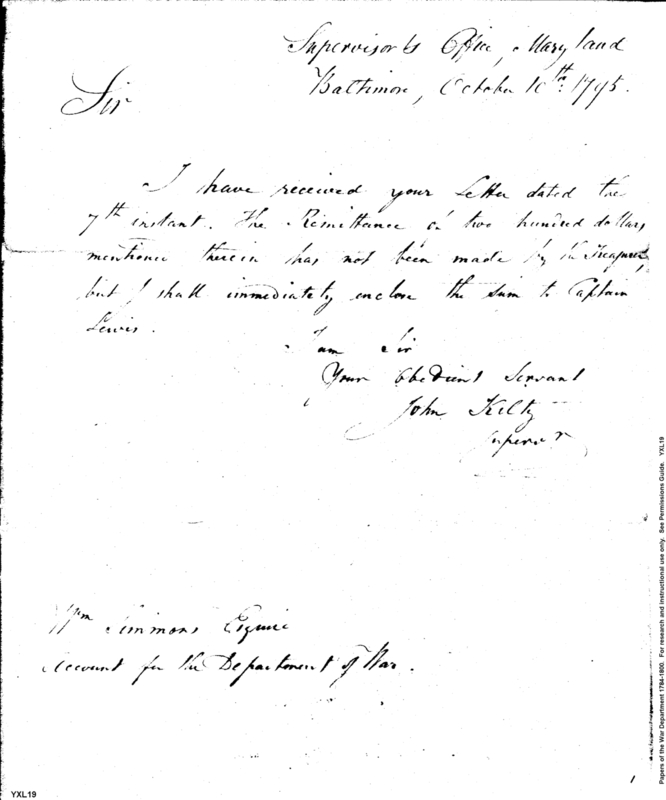 Supervisor's Office, Maryland
Baltimore, October 10th. 1795.
Sir
I have received your Letter dated the
7th instant. The Remittance of two hundred dollars
mentioned therein has not been made by the Treasurer,
but I shall immediately enclose the sum to Captain
Lewis.
I am Sir
Your Obedient Servant
John Kilty
Supervr
Wm Simmons Esquire
Account for the Department of War.
YXL19
Papers of the War Department 1784-1800. For research and instructional use only. See Permissions Guide. YXL19